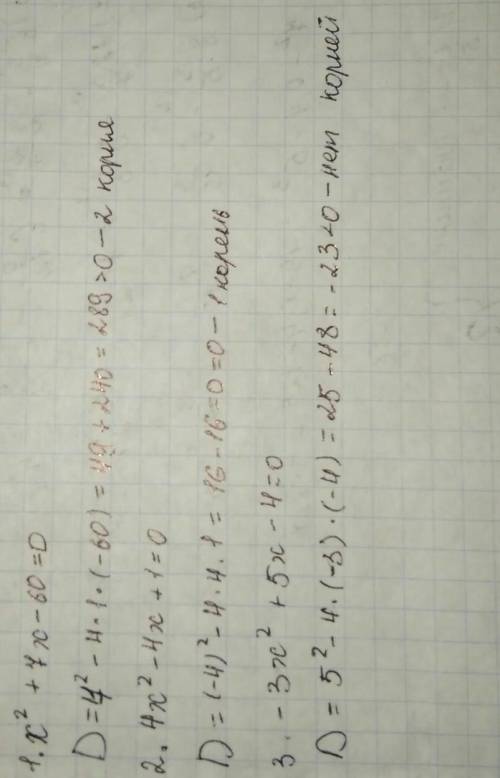 1. x² + 7x - 60 = 0
D = 7² - 4·1·(-60) = 49 + 240 = 289 > 0 - 2 корня
2. 4x² - 4x + 1 = 0
D = (-4)² - 4·4·1 = 16 - 16 = 0 = 0 - 1 корень
3. -3x² + 5x - 4 = 0
D = 5² - 4·(-3)·(-4) = 25 - 48 = -23 < 0 - нет корней